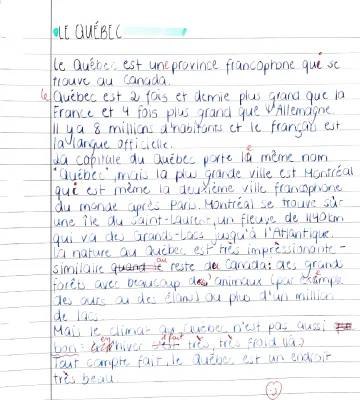 LE QUÉBEC
Le Québec est une province francophone qui se
trouve au Canada.
Le Québec est 2 fois et demie plus grand que la
France et 4 fois plus grand que l'Allemagne.
Il y a 8 millions d'habitants et le français est
la langue officielle.
La capitale du Québec porte le même nom
"Québec", mais la plus grande ville est Montréal
qui est même la deuxième ville francophone
du monde après Paris. Montréal se trouve sur
une île du Saint-Laurent, un fleuve de 1140km
qui va des Grands-Lacs jusqu'à l'Atlantique.
La nature au Québec est très impressionante -
similaire au reste du Canada: des grands
forêts avec beaucoup d'animaux (par exemple
des ours ou des élans) ou plus d'un million
de lacs.
Mais le climat au Québec n'est pas aussi
bon: en hiver il fait très, très froid là.
Tout compte fait, le Québec est un endroit
très beau.